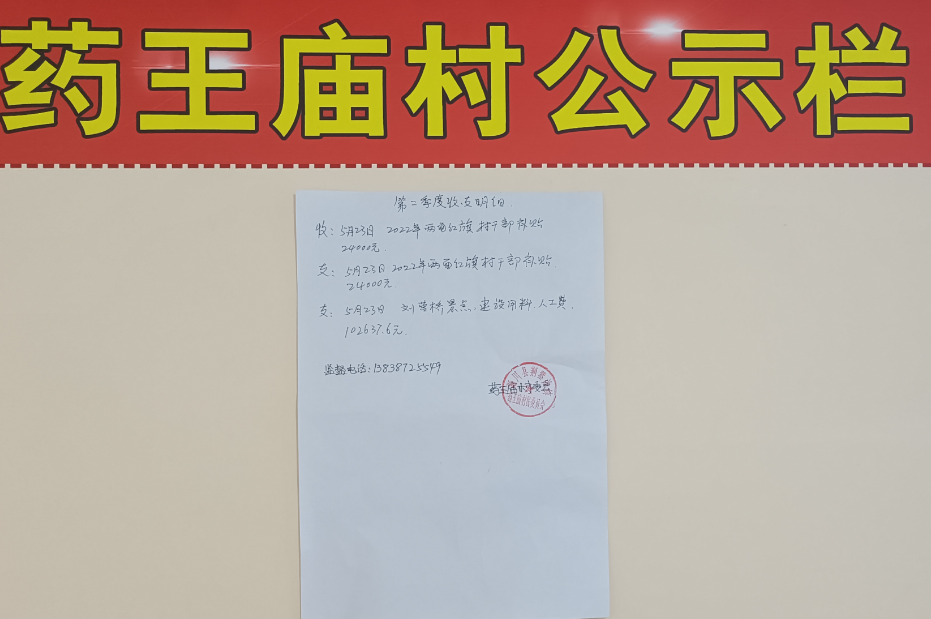 药王庙村公示栏
第二季度收支明细
收: 5月23日 2022年两面红旗村干部补贴
24000元.
支: 5月23日 2022年两面红旗村干部补贴
24000元
支: 5月23日 刘营桥景点.建设用料.人工费.
102637.6元
监督电话:13838725549
药王庙村
药王庙村民委员会